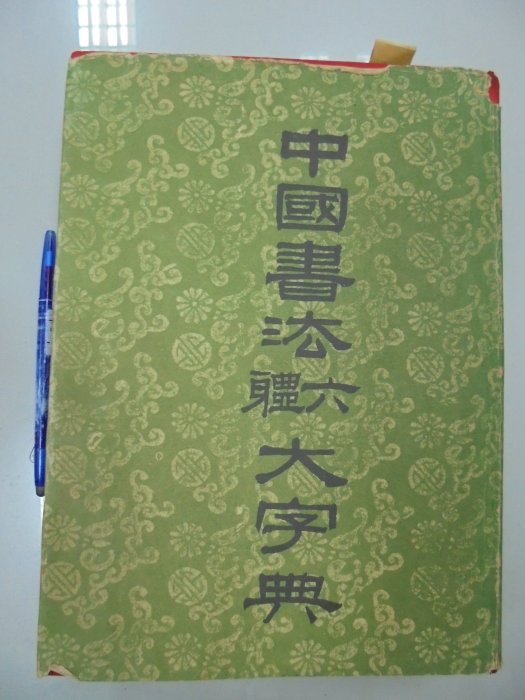 中國書法六體大字典